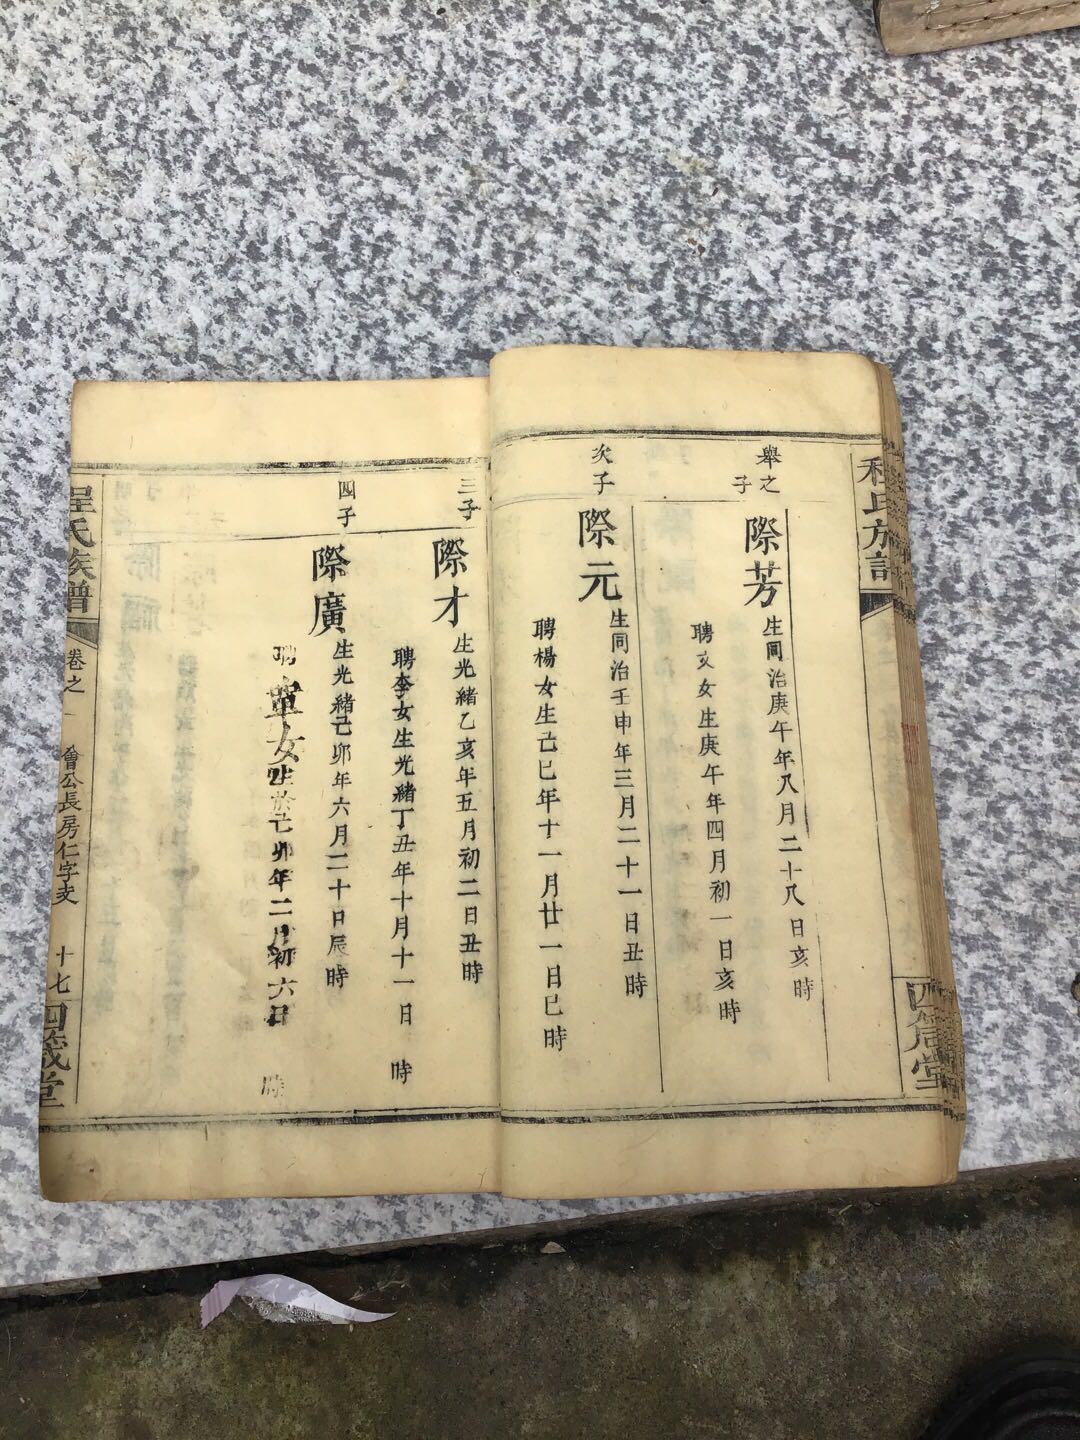 程氏族譜
四箴堂
舉之子
際芳
生同治庚午年八月二十八日亥時
聘文女生庚午年四月初一日亥時
次子
際元
生同治壬申年三月二十一日丑時
聘楊女生己巳年十一月廿一日巳時
三子
際才
生光緒乙亥年五月初二日丑時
聘李女生光緒丁丑年十月十一日 時
四子
際廣
生光緒己卯年六月二十日辰時
聘覃女生於己卯年二月初六日 時
程氏族譜
卷之一
會公長房仁字支
十七
四箴堂